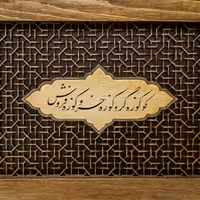 کو کوزه‌گر و کوزه‌خر و کوزه‌فروش